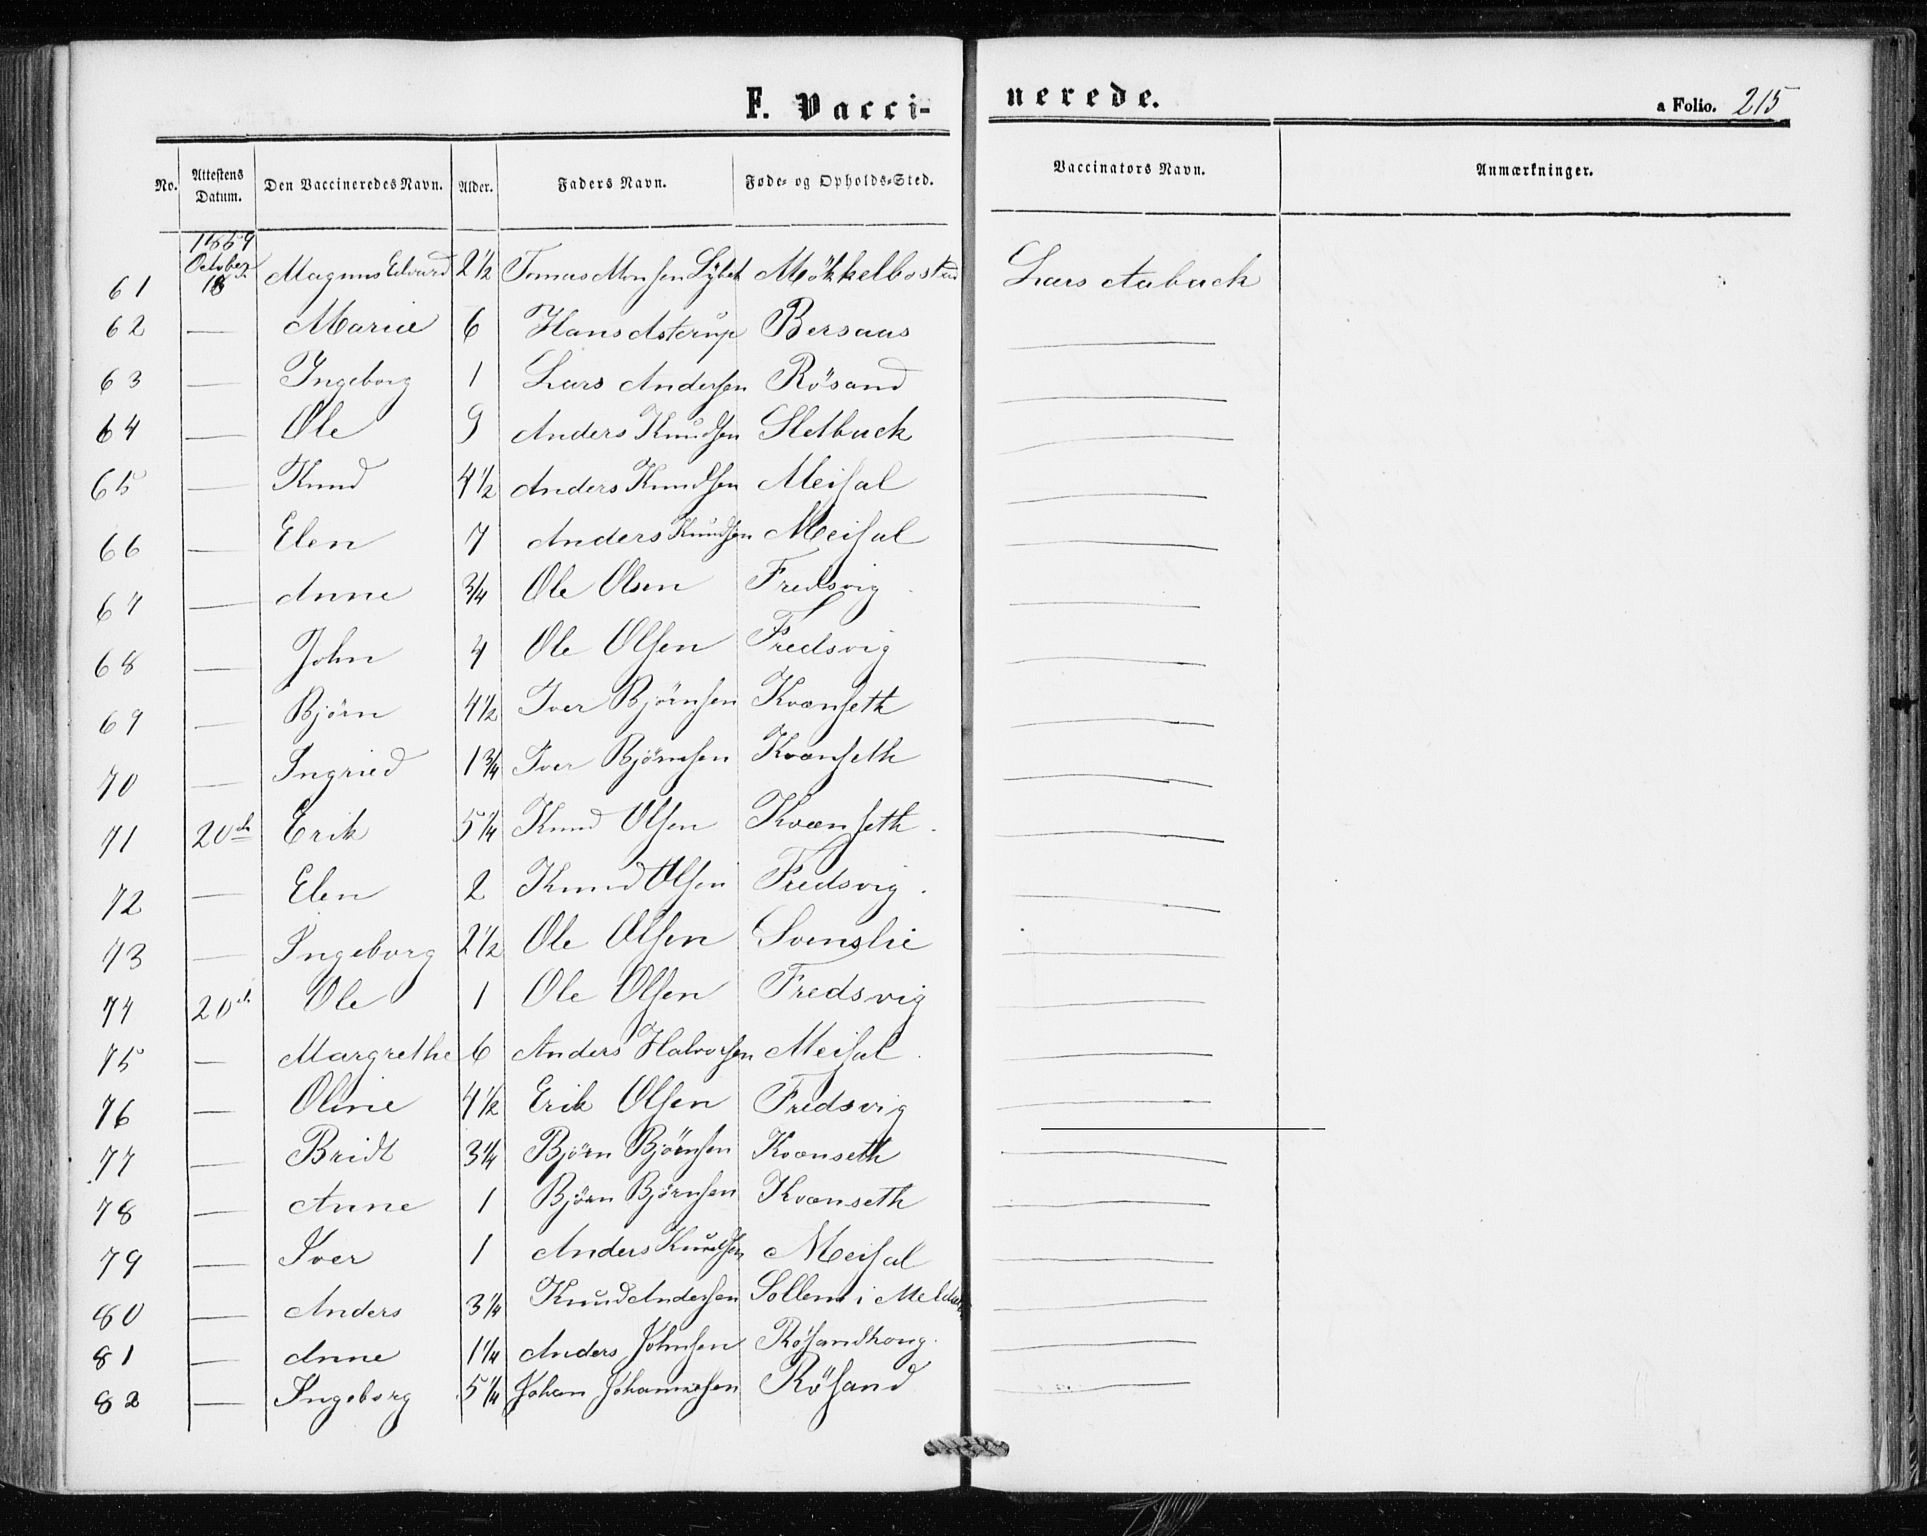 F. Vacci-
nerede.
a Folio. 215
No. Attestens Datum. Den Vaccineredes Navn. Alder. Faders Navn. Føde- og Opholds-Sted. Vaccinators Navn. Anmærkninger.
1869
October
61 18 Magnus Edvard 2 1/2 Tomas Monsen Mökkelbostad Lars Aaback
62 — Marie 6 Hans Asterup Bersaas —
63 — Ingeborg 1 Lars Andersen Rösand —
64 — Ole 9 Anders Knudsen Sletback —
65 — Knud 4 1/2 Anders Knudsen Meisal —
66 — Elen 7 Anders Knudsen Meisal —
67 — Anne 3/4 Ole Olsen Fredsvig —
68 — John 4 Ole Olsen Fredsvig —
69 — Björn 4 1/2 Iver Björnsen Kvanseth —
70 — Ingried 1 3/4 Iver Björnsen Kvanseth —
71 20de Erik 5 1/4 Knud Olsen Kvanseth —
72 — Elen 2 Knud Olsen Fredsvig —
73 — Ingeborg 2 1/2 Ole Olsen Svenslie —
74 20de Ole 1 Ole Olsen Fredsvig —
75 — Margrethe 6 Anders Halvorsen Meisal —
76 — Oline 4 1/2 Erik Olsen Fredsvig —
77 — Bridt 3 1/4 Björn Björnsen Kvanseth —
78 — Anne 1 Björn Björnsen Kvanseth —
79 — Iver 1 Anders Knudsen Meisal —
80 — Anders 3 1/4 Knud Andersen Sollem i —
81 — Anne 1 1/4 Anders Johnsen Rösandhoug —
82 — Ingeborg 5 1/4 Johan Johannesen Rösand —